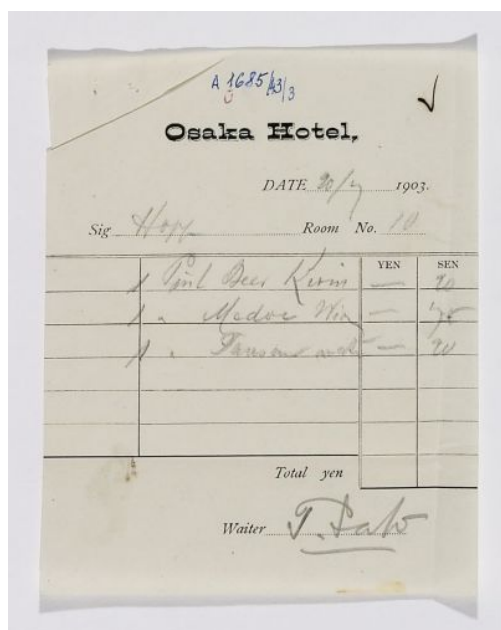 A 1685/43/3
Osaka Hotel,
DATE 20/7 1903.
Sig Hopp Room No. 10
YEN SEN
1 Pint Beer Kirin — 20
1 " Medoc Wine — 75
1 " Tansan — 20
Total yen
Waiter T. Sato